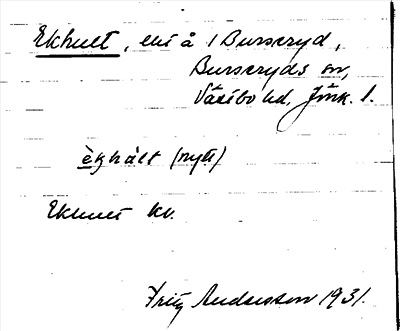 Ekhult, till å i Burseryd,
Burseryds sn,
Västbo hd, Jönk. l.
ekhált (nytt)
Ekhult kv.
Fritz Andersson 1931.